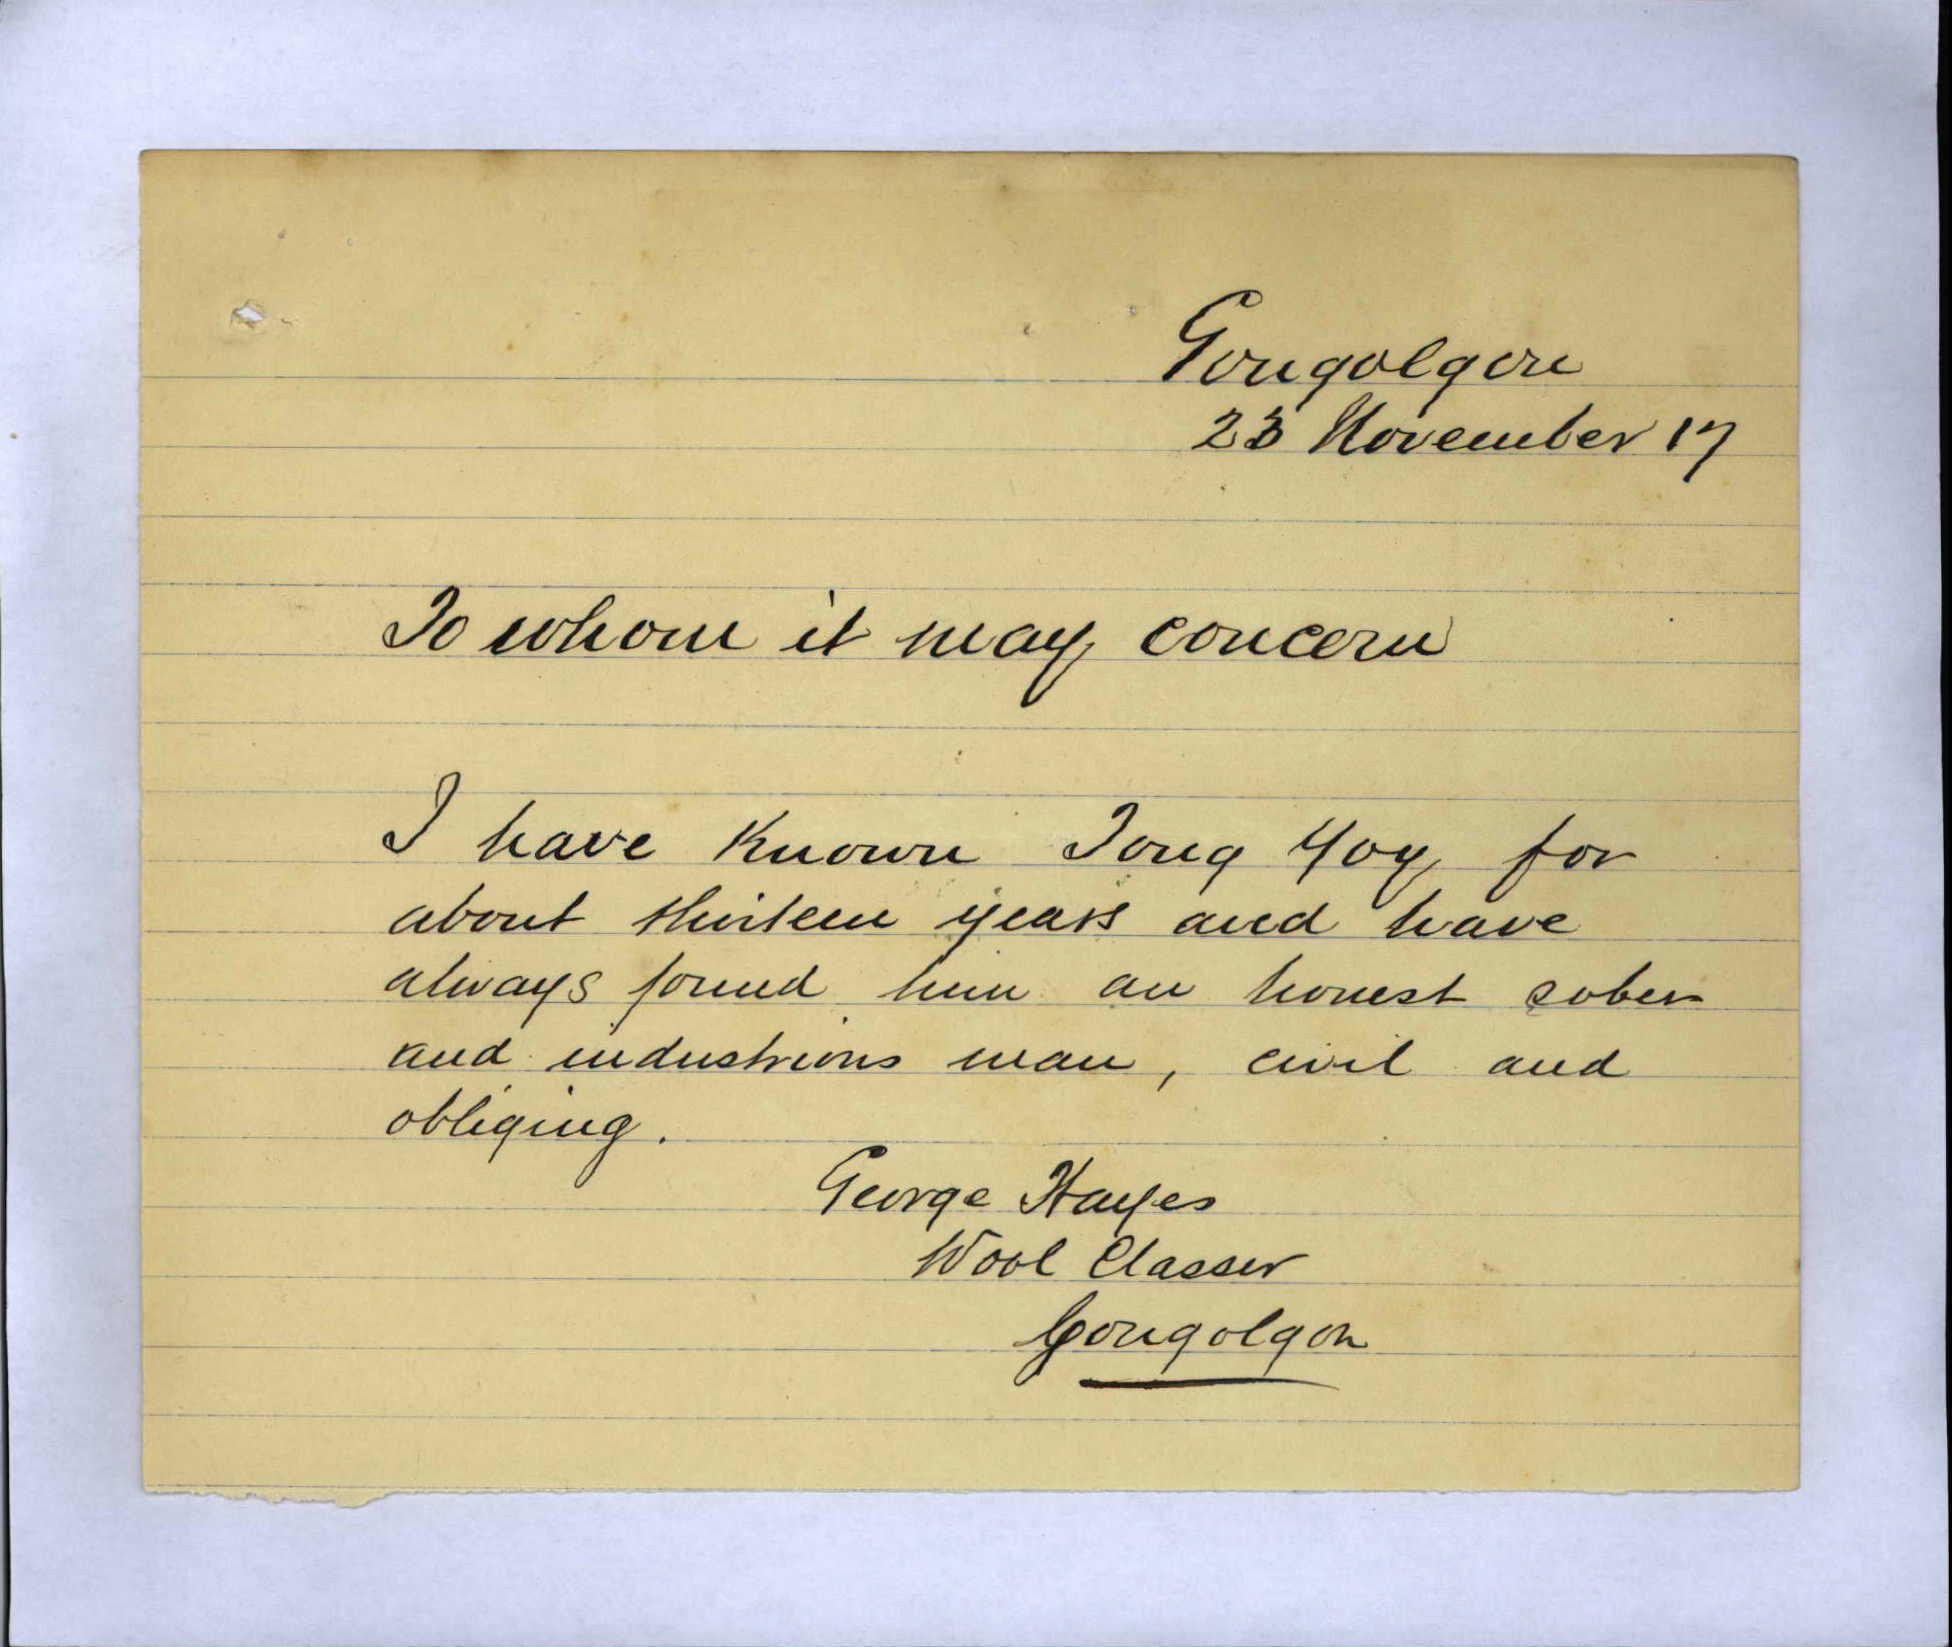 Gongolgon
23 November 17
To whom it may concern
I have known Tong Yoy for
about thirteen years and have
always found him an honest sober
and industrious man, civil and
obliging.
George Hayes
Wool Classer
Gongolgon